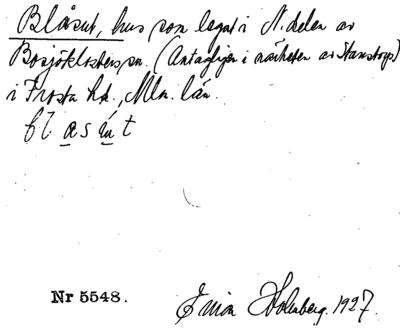 Blåsut, hus som legat i N. delen av
Bosjöklosters sn. (Antagligen i närheten av Stanstorp)
i Frosta hd., Mlm. län.
blasút
Nr 5548.
Holmberg. 1927.